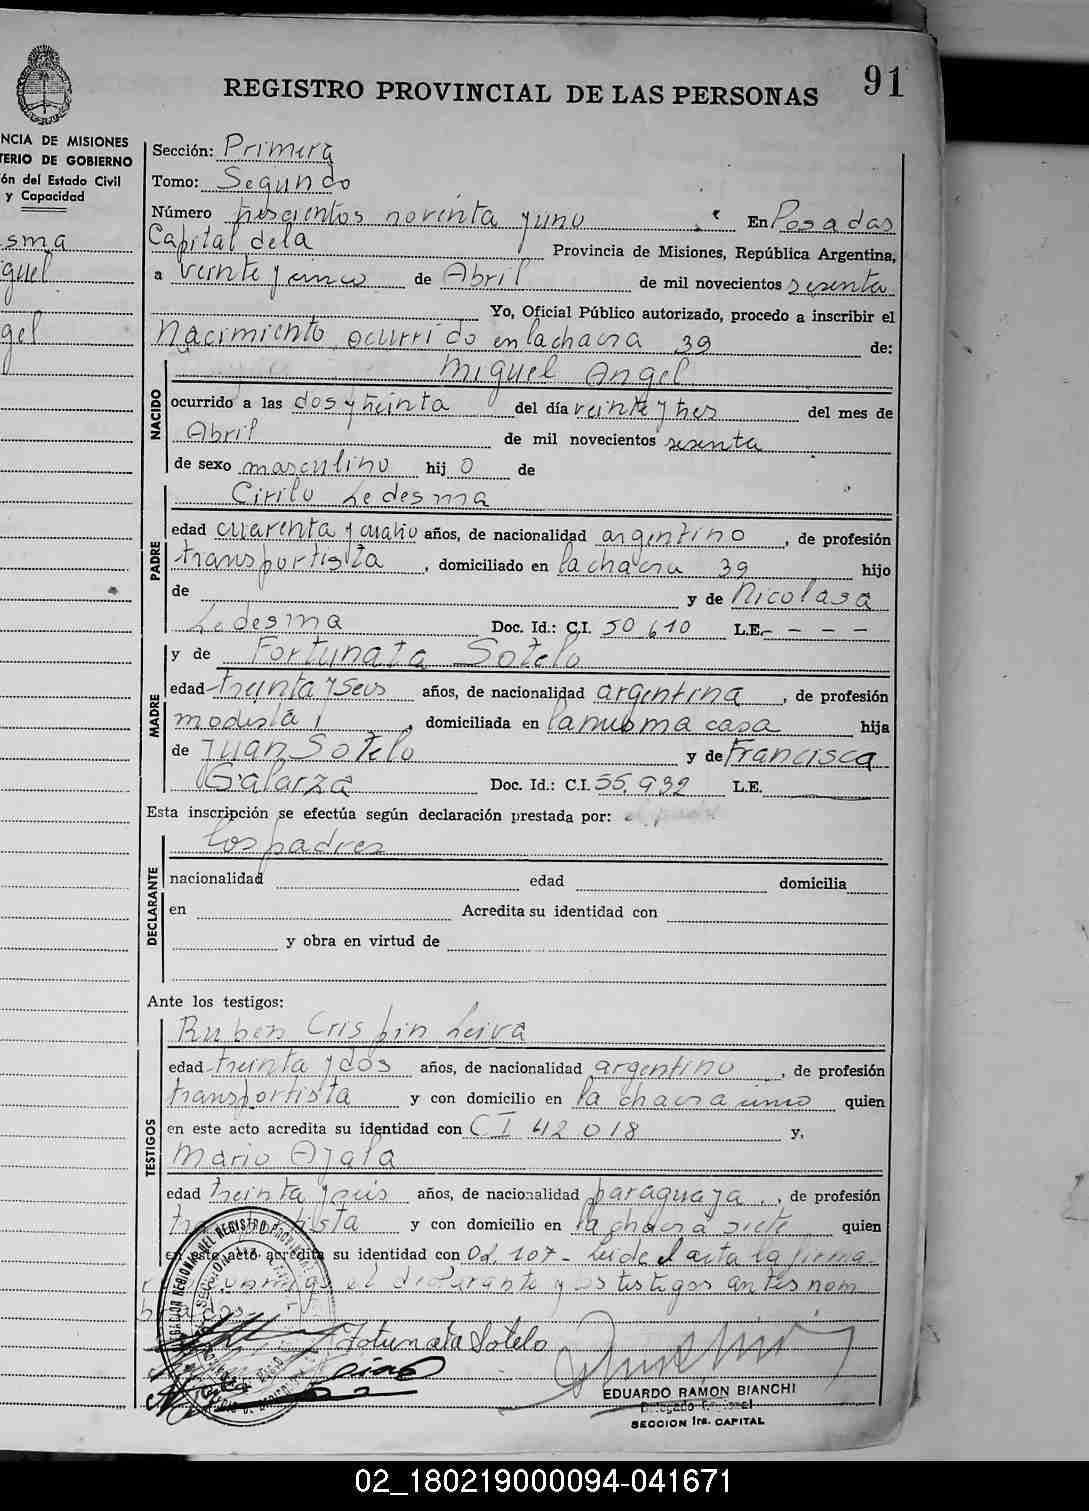 91
REGISTRO PROVINCIAL DE LAS PERSONAS
NCIA DE MISIONES
TERIO DE GOBIERNO
ón del Estado Civil
y Capacidad
sma
guel
gel
Sección: Primera
Tomo: Segundo
Número trescientos noventa y uno En Posadas
Capital de la Provincia de Misiones, República Argentina,
a veinte y cinco de Abril de mil novecientos sesenta
Yo, Oficial Público autorizado, procedo a inscribir el
Nacimiento ocurrido en la chacra 39 de:
NACIDO
Miguel Angel
ocurrido a las dos y treinta del día veinte y tres del mes de
Abril de mil novecientos sesenta
de sexo masculino hij o de
PADRE
Cirilo Ledesma
edad cuarenta y cuatro años, de nacionalidad argentino, de profesión
transportista, domiciliado en la chacra 39 hijo
de y de Nicolasa
Ledesma Doc. Id.: C.I. 50 610 L.E. - - - -
MADRE
y de Fortunata Sotelo
edad treinta y seis años, de nacionalidad argentina, de profesión
modista, domiciliada en la misma casa hija
de Juan Sotelo y de Francisca
Galarza Doc. Id.: C.I. 55.932 L.E.
Esta inscripción se efectúa según declaración prestada por:
DECLARANTE
los padres
nacionalidad edad domicilia
en Acredita su identidad con
y obra en virtud de
Ante los testigos:
TESTIGOS
Ruben Crispin Leiva
edad treinta y dos años, de nacionalidad argentino, de profesión
transportista y con domicilio en la chacra uno quien
en este acto acredita su identidad con CI 42 018 y,
Mario Ayala
edad treinta y seis años, de nacionalidad paraguaya, de profesión
y con domicilio en la chacra siete quien
en este acto acredita su identidad con 02.107 - Leida el acta la firma
el declarante y los testigos antes nom
Fotunata Sotelo
EDUARDO RAMON BIANCHI
Delegado Regional
SECCION 1ra. CAPITAL
02_180219000094-041671